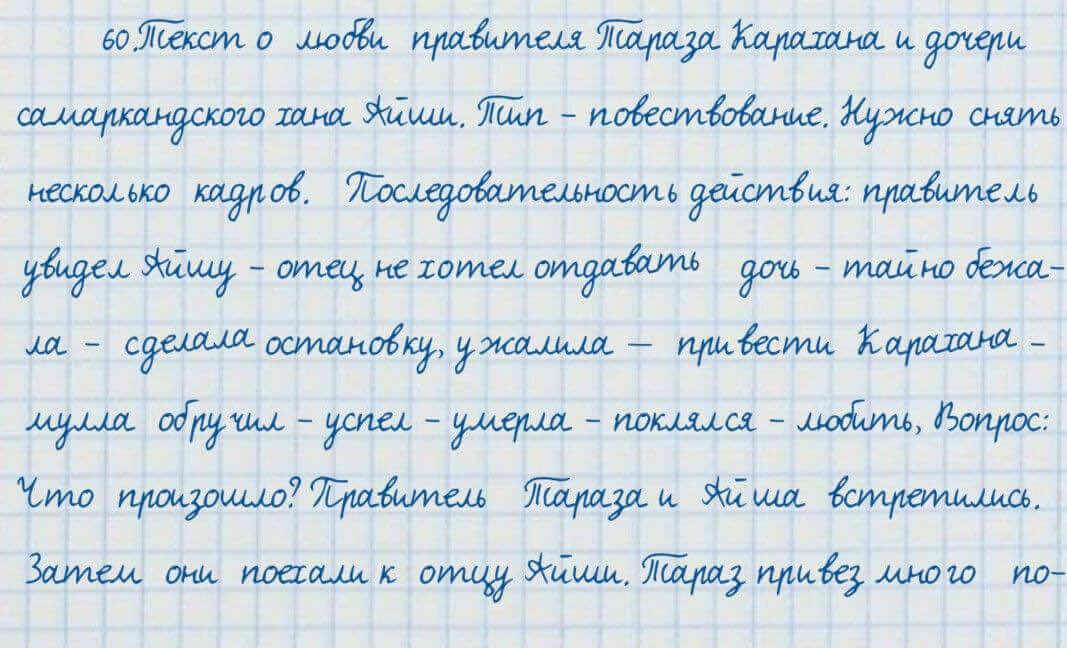 60. Текст о любви правителя Тараза Карахана и дочери
самаркандского хана Айши. Тип - повествование. Нужно снять
несколько кадров. Последовательность действия: правитель
увидел Айшу - отец не хотел отдавать дочь - тайно бежа-
ла - сделала остановку, ужалила - привести Карахана -
мулла обручил - успел - умерла - поклялся - любить, Вопрос:
Что произошло? Правитель Тараза и Айша встретились.
Затем они поехали к отцу Айши. Тараз привез много по-